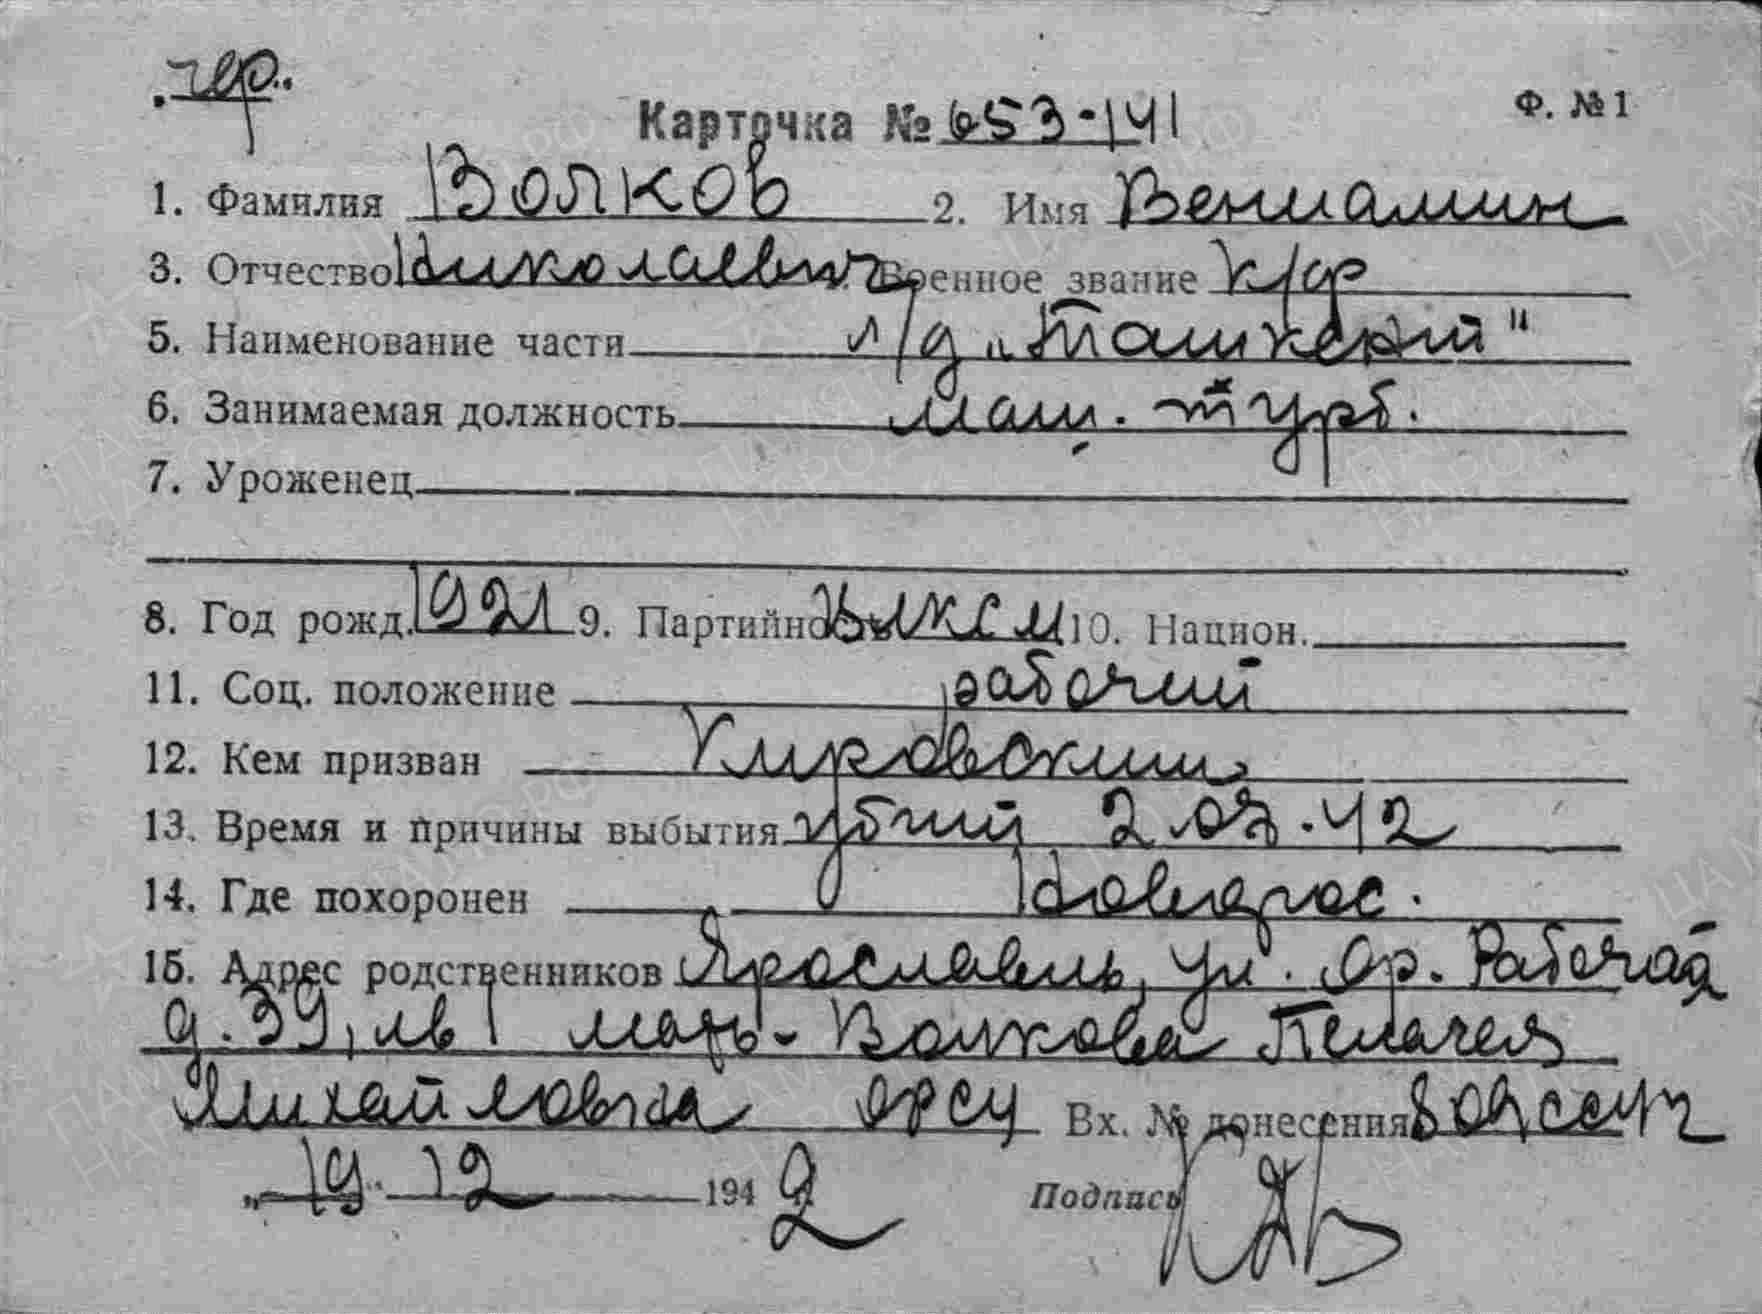 чер.
Карточка № 653-141 Ф. № 1
1. Фамилия Волков 2. Имя Вениамин
3. Отчество Николаевич Военное звание к/ф
5. Наименование части л/д „Ташкент"
6. Занимаемая должность маш. турб.
7. Уроженец
8. Год рожд. 1921 9. Партийность ВЛКСМ 10. Национ.
11. Соц. положение рабочий
12. Кем призван Кировским
13. Время и причины выбытия убит 2.07.42
14. Где похоронен Новорос.
15. Адрес родственников Ярославль, ул. Рабочая
д. 39, мать - Волкова Пелагея
Михайловна Вх. № донесения
„19" 12 1942 Подпись